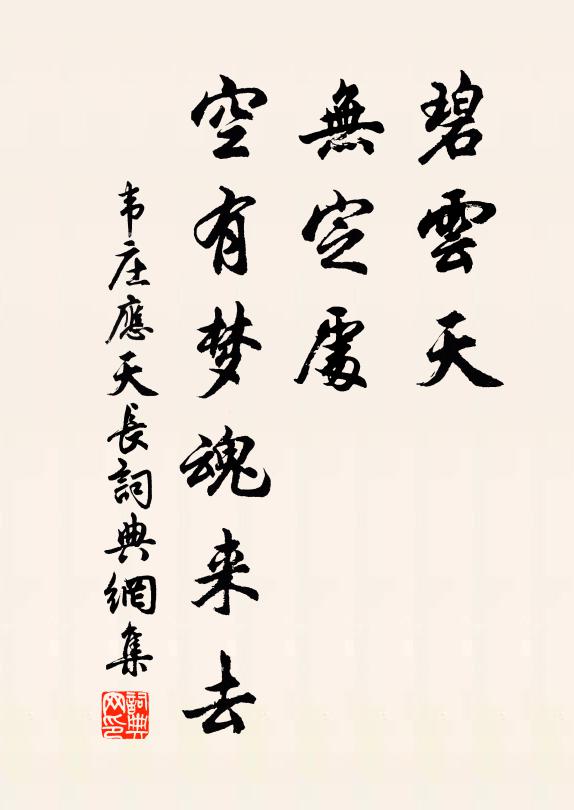 碧雲天
無定處
空有梦魂来去
韦庄應天長詞典網集
詞典
网印